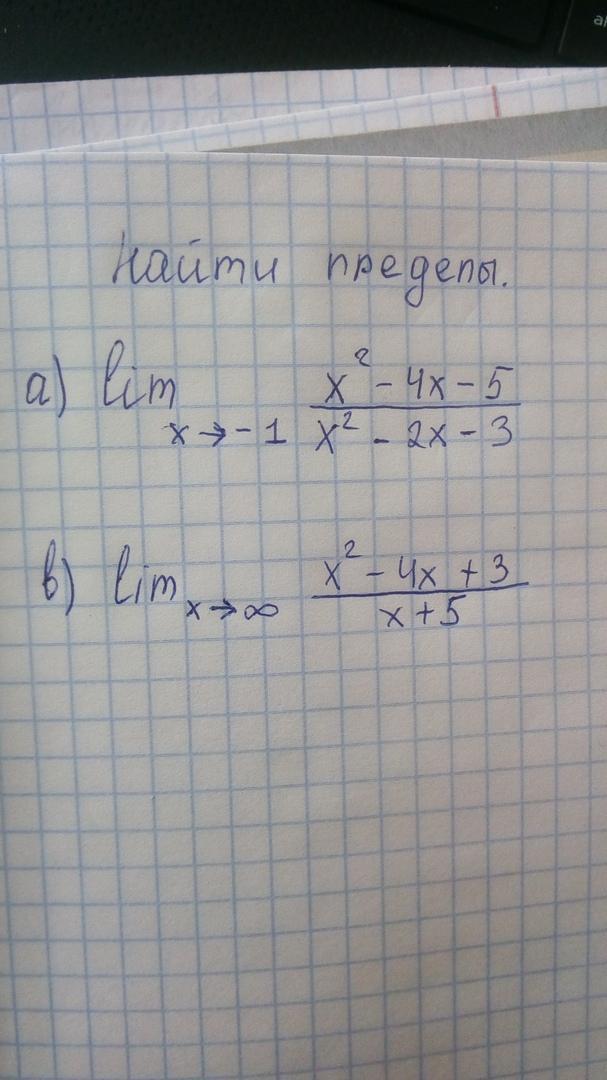 Найти пределы.
а) lim x→-1 (x² - 4x - 5)/(x² - 2x - 3)
в) lim x→∞ (x² - 4x + 3)/(x + 5)